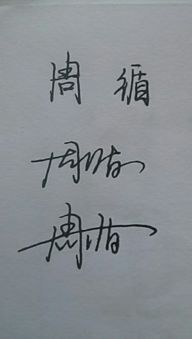 周 循
周循
周循